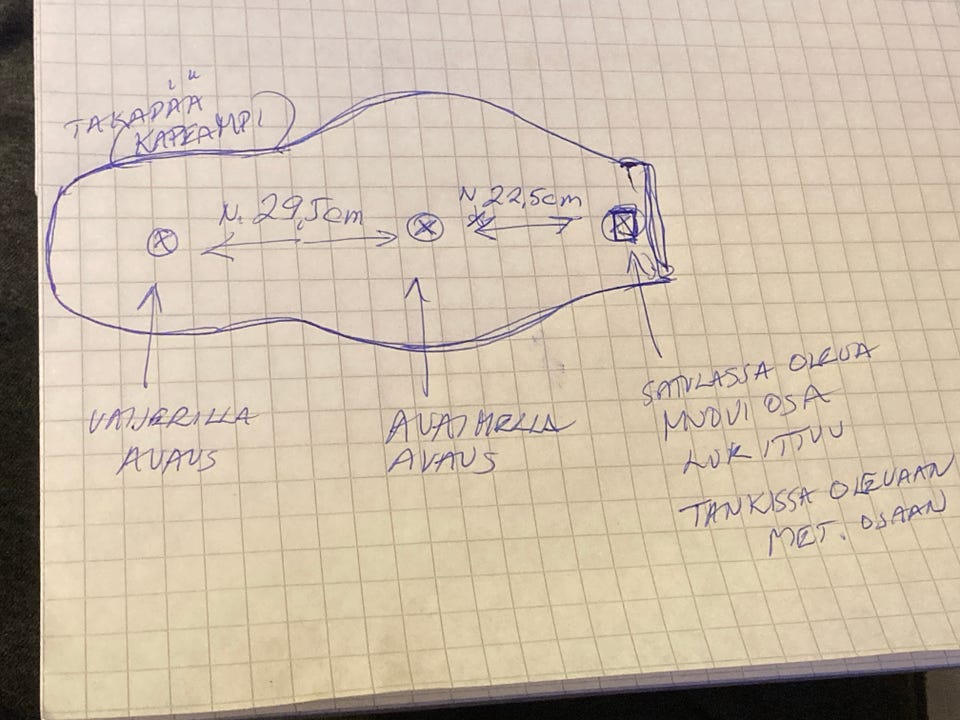 TAKAPÄÄ
KAPEAMPI
N. 29,5cm
N. 22,5cm
VAIJERILLA
AVAUS
AVAIMELLA
AVAUS
SATULASSA OLEVA
MUOVI OSA
LUKITTUU
TANKISSA OLEVAAN
MET. OSAAN